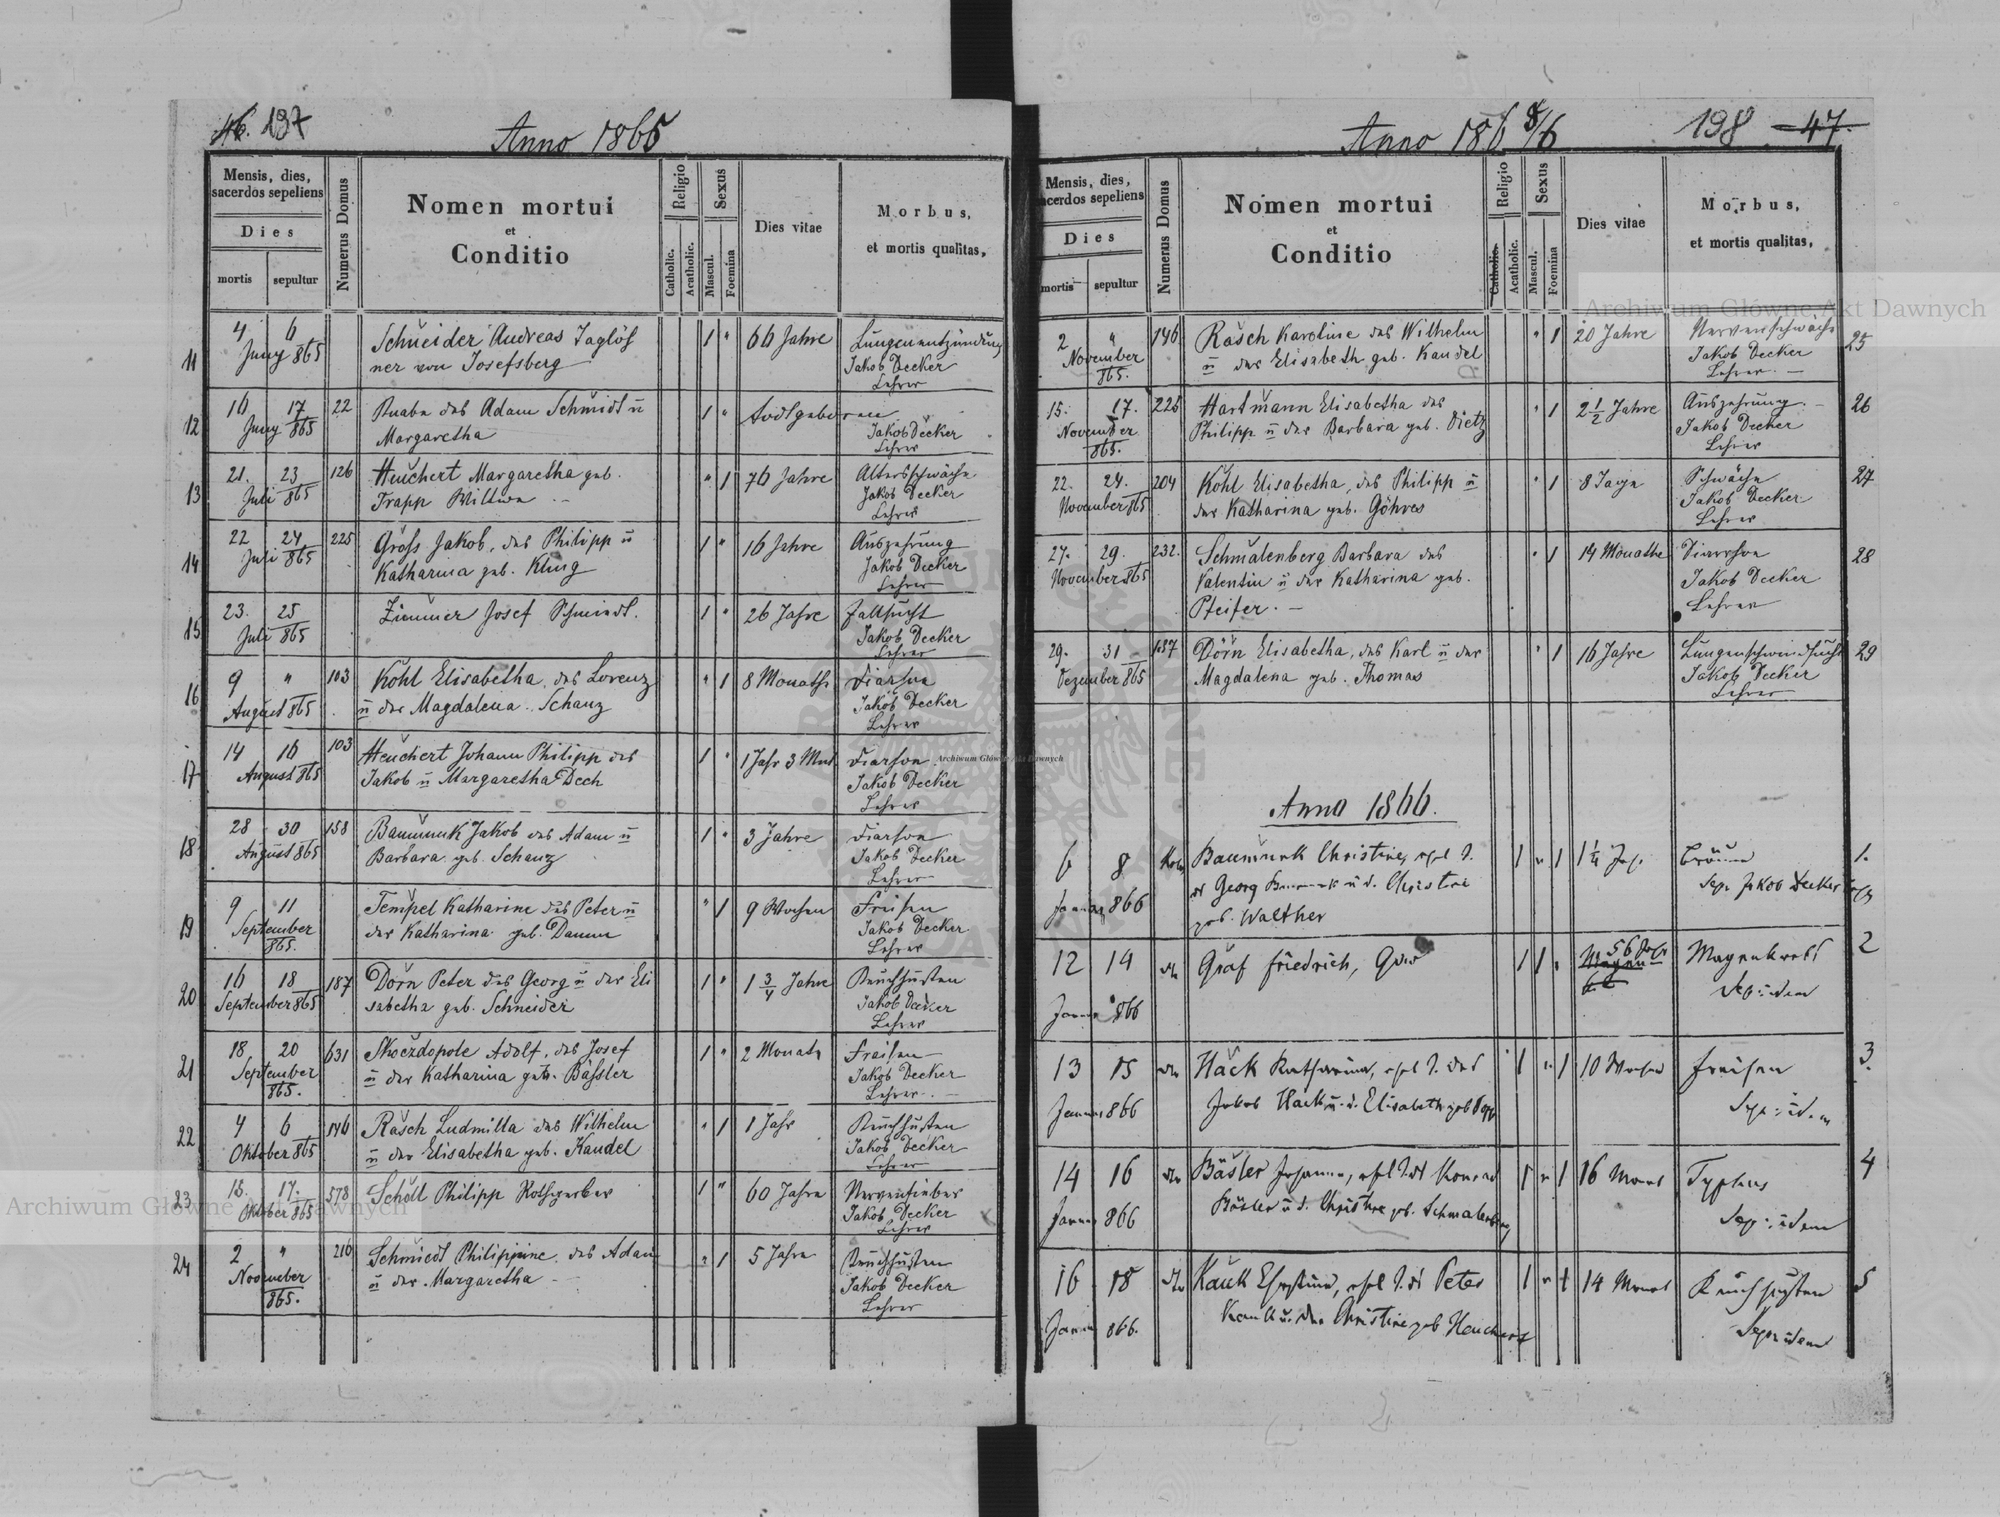 46. 197
Anno 1865
Mensis, dies,
sacerdos sepeliens
Dies
mortis
sepultur
Numerus Domus
Nomen mortui
et
Conditio
Religio
Catholic.
Acatholic.
Sexus
Mascul.
Foemina
Dies vitae
Morbus,
et mortis qualitas,
11 4 6 Schneider Andreas Taglöh 1 " 66 Jahre Lungenentzündung
Juny 865 ner von Josefsberg Jakob Decker
Lehrer
12 16 17 22 Knabe des Adam Schmidt u 1 " todtgeboren
Juny 865 Margaretha Jakob Decker
Lehrer
13 21. 23 126 Heuchert Margaretha geb. " 1 76 Jahre Altersschwäche
Juli 865 Trapp Wittwe Jakob Decker
Lehrer
14 22 24 225 Groß Jakob, des Philipp u 1 " 16 Jahre Auszehrung
Juli 865 Katharina geb. Kling Jakob Decker
Lehrer
15 23. 25 Zimmer Josef Schmiedt. 1 " 26 Jahre Fallsucht
Juli 865 Jakob Decker
Lehrer
16 9 " 103 Kohl Elisabetha, des Lorenz " 1 8 Monathe Diarhoe
August 865 u der Magdalena Schanz Jakob Decker
Lehrer
17 14 16 103 Heuchert Johann Philipp des 1 " 1 Jahr 3 Mnt Diarhoe
August 865 Jakob u Margaretha Dech Jakob Decker
Lehrer
18 28 30 158 Baumunk Jakob des Adam u 1 " 3 Jahre Diarhoe
August 865 Barbara geb. Schanz Jakob Decker
Lehrer
19 9 11 Tempel Katharine des Peter u " 1 9 Wochen Freisen
September der Katharina geb. Damm Jakob Decker
865. Lehrer
20 16 18 187 Dorn Peter des Georg u der Eli 1 " 1 3/4 Jahre Keuchhusten
September 865 sabetha geb. Schneider Jakob Decker
Lehrer
21 18 20 631 Skoczdopole Adolf, des Josef 1 " 2 Monate Freisen
September u der Katharina geb. Bäßler Jakob Decker
865. Lehrer
22 4 6 146 Rasch Ludmilla des Wilhelm " 1 1 Jahr Keuchhusten
Oktober 865 u der Elisabetha geb. Kandel Jakob Decker
Lehrer
23 15. 17. 578 Scholl Philipp Rothgerber 1 " 60 Jahre Nervenfieber
Oktober 865 Jakob Decker
Lehrer
24 2 " 216 Schmiedt Philippine des Adam " 1 5 Jahre Keuchhusten
November u der Margaretha Jakob Decker
865. Lehrer
Anno 1865/6
198 47.
Mensis, dies,
sacerdos sepeliens
Dies
mortis
sepultur
Numerus Domus
Nomen mortui
et
Conditio
Religio
Catholic.
Acatholic.
Sexus
Mascul.
Foemina
Dies vitae
Morbus,
et mortis qualitas,
2 " 146 Rasch Karoline des Wilhelm " 1 20 Jahre Nervenschwäche 25
November u der Elisabeth geb. Kandel Jakob Decker
865. Lehrer
15. 17. 225 Hartmann Elisabetha des " 1 2 1/2 Jahre Auszehrung 26
November Philipp u der Barbara geb. Dietz Jakob Decker
865. Lehrer
22. 24. 204 Kohl Elisabetha, des Philipp u " 1 8 Tage Schwäche 27
November 865 der Katharina geb. Göhres Jakob Decker
Lehrer
27. 29. 232. Schmalenberg Barbara des " 1 14 Monathe Diarrhoe 28
November 865 Valentin u der Katharina geb. Jakob Decker
Pfeifer. Lehrer
29. 31 187 Dorn Elisabetha, des Karl u der " 1 16 Jahre Lungenschwindsucht 29
Dezember 865 Magdalena geb. Thomas Jakob Decker
Lehrer
Anno 1866.
6 8 Baumunk Christine, ehel T. 1 " 1 1 1/4 Jahr Bräune 1.
Januar 866 Georg Baumunk u d. Christine Sep. Jakob Decker
geb. Walther
12 14 Graf Friedrich, 1 1 " 56 Jahr Magenkrebs 2
Januar 866 Sep: idem
13 15 Hack Katharina, ehel T. des 1 " 1 10 Wochen Freisen 3.
Januar 866 Jakob Hack u. d. Elisabeth geb Sep: idem
14 16 Bäsler Johanna, ehel T. des Konrad 1 " 1 16 Monat Typhus 4
Januar 866 Bäsler u d. Christine geb. Schmalenberg Sep: idem
16 18 Kauk Christina, ehel T. des Peter 1 " 1 14 Monat Keuchhusten 5
Januar 866. Kauk u. der Christine geb Heuchert Sep: idem
Archiwum Główne Akt Dawnych
Archiwum Główne Akt Dawnych
Archiwum Główne Akt Dawnych